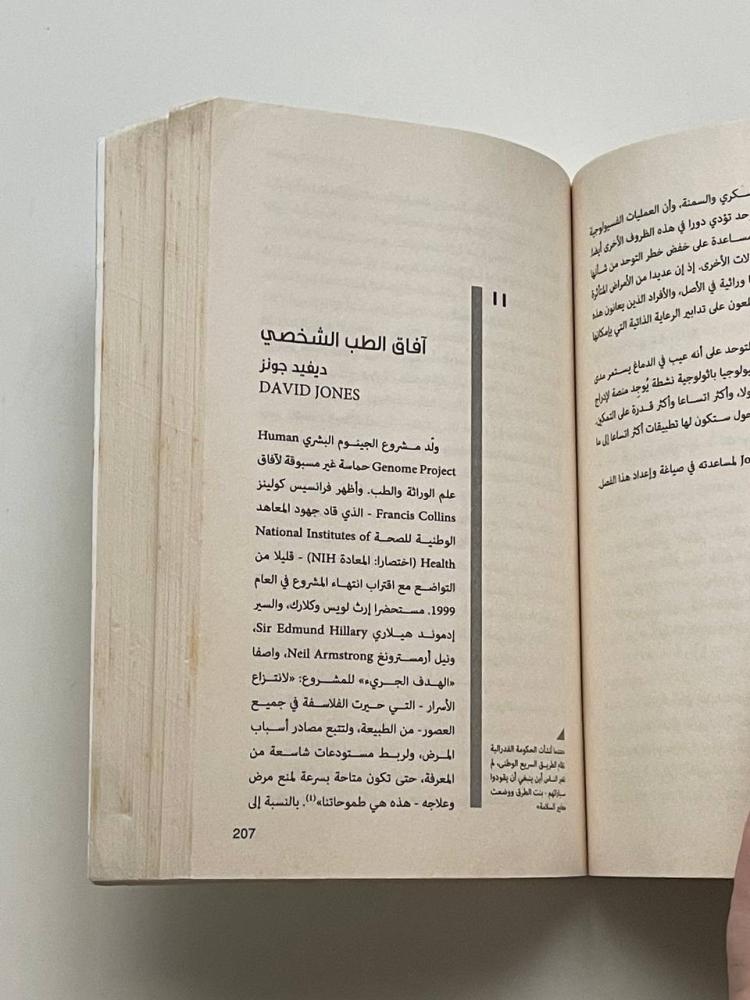 والسمنة، وأن العمليات الفسيولوجية
تؤدي دورا في هذه الظروف الأخرى أيضا.
على خفض خطر التوحد من شأنها
الأخرى. إذ إن عديدا من الأمراض المتأثرة
وراثية في الأصل، والأفراد الذين يعانون هذه
على تدابير الرعاية الذاتية التي بإمكانها
التوحد على أنه عيب في الدماغ يستمر مدى
باثولوجية نشطة يُوجِد منصة لإدراج
وأكثر اتساعا وأكثر قدرة على التمكين.
ستكون لها تطبيقات أكثر اتساعا إلى ما
لمساعدته في صياغة وإعداد هذا الفصل.
11
آفاق الطب الشخصي
ديفيد جونز
DAVID JONES
ولّد مشروع الجينوم البشري Human
Genome Project حماسة غير مسبوقة لآفاق
علم الوراثة والطب. وأظهر فرانسيس كولينز
Francis Collins - الذي قاد جهود المعاهد
الوطنية للصحة National Institutes of
Health (اختصارا: المعادة NIH) - قليلا من
التواضع مع اقتراب انتهاء المشروع في العام
1999. مستحضرا إرث لويس وكلارك، والسير
إدموند هيلاري Sir Edmund Hillary،
ونيل أرمسترونغ Neil Armstrong، واصفا
«الهدف الجريء» للمشروع: «لانتزاع
الأسرار - التي حيرت الفلاسفة في جميع
العصور- من الطبيعة، ولتتبع مصادر أسباب
المرض، ولربط مستودعات شاسعة من
المعرفة، حتى تكون متاحة بسرعة لمنع مرض
وعلاجه - هذه هي طموحاتنا»(1). بالنسبة إلى
أنشأت الحكومة الفدرالية
الطريق السريع الوطني، لم
الناس أين ينبغي أن يقودوا
سياراتهم - بنت الطرق ووضعت
السلامة»
207